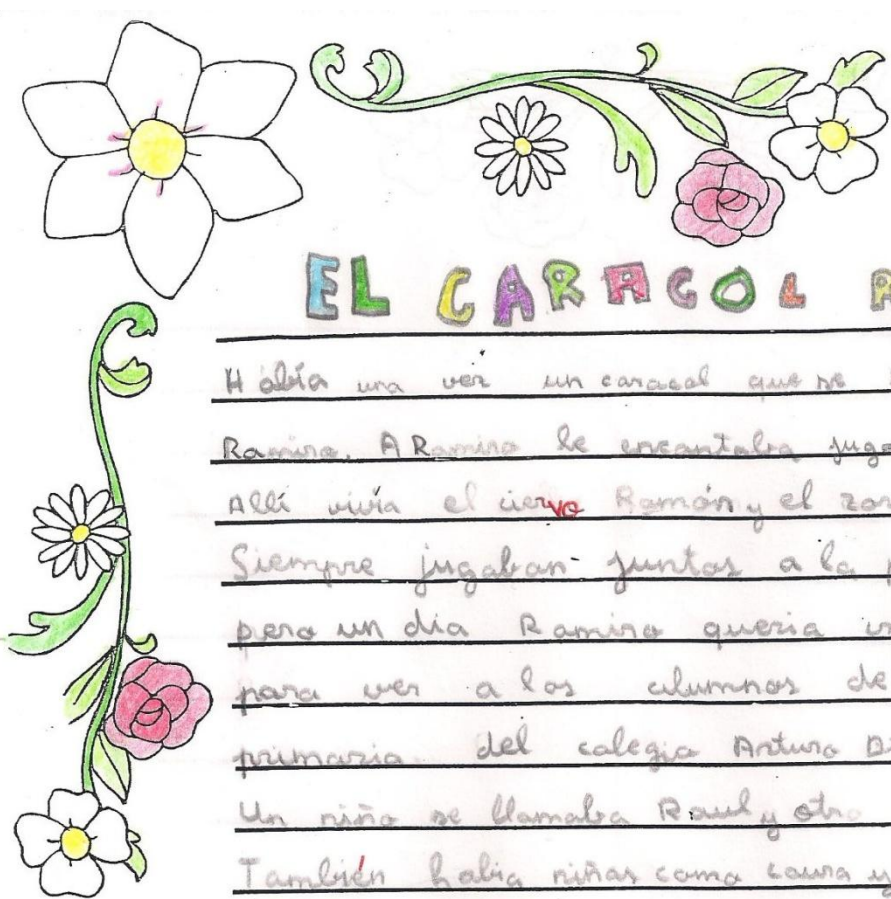 EL CARACOL R
Había una vez un caracol que se
Ramiro. A Ramiro le encantaba juga
Allí vivía el ciervo Ramón y el zor
Siempre jugaban juntos a la p
pero un dia Ramiro queria i
para ver a los alumnos de
primaria del colegio Arturo D
Un niño se llamaba Raul y otro
También habia niñas como Laura y